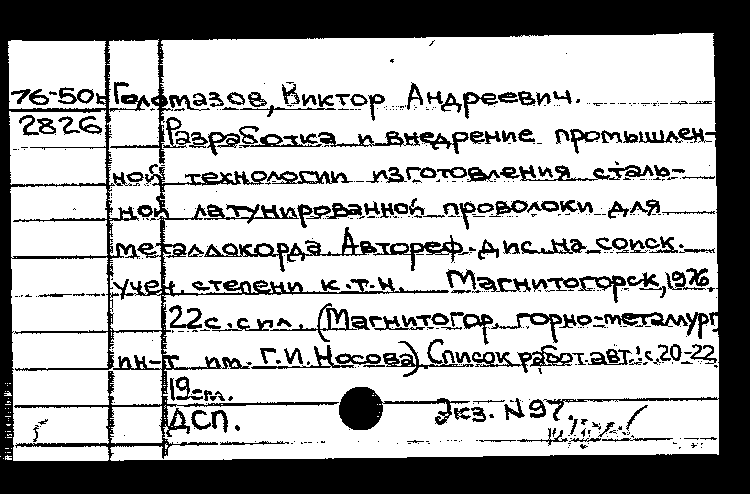 76-50к Голомазов, Виктор Андреевич.
2826 Разработка и внедрение промышлен-
ной технологии изготовления сталь-
ной латунированной проволоки для
металлокорда. Автореф. дис. на соиск.
учен. степени к.т.н. Магнитогорск, 1976.
22с. с ил. (Магнитогор. горно-металлург.
ин-т им. Г.И. Носова) Список работ авт.: с.20-22
19см.
ДСП. Экз. N 97.